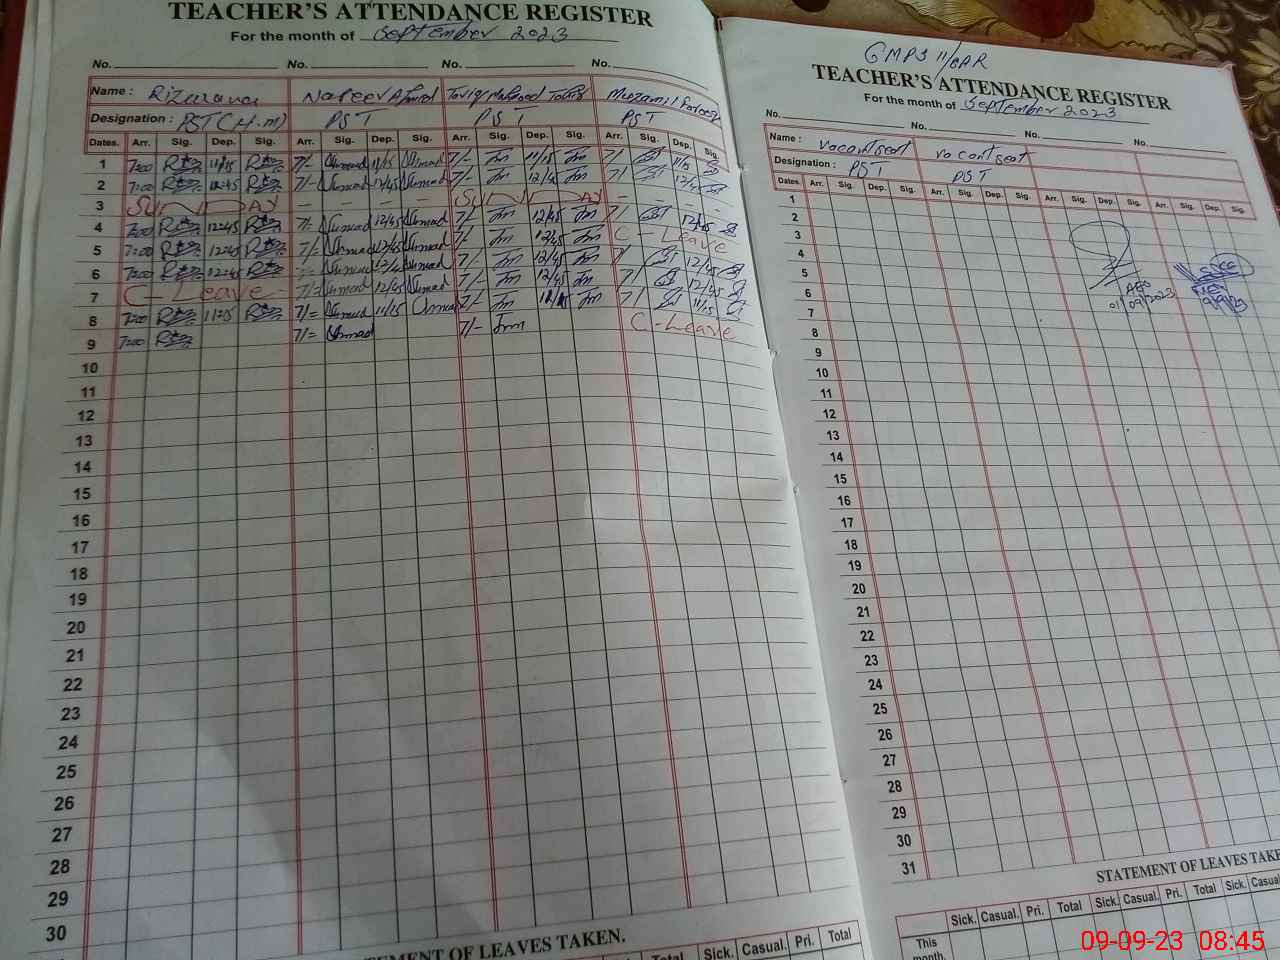 TEACHER'S ATTENDANCE REGISTER
For the month of September 2023
No. No. No. No.
Name : Rizwana Naseer Ahmed Tariq Mahmood Tahir Muzamil
Designation : PST (H.M) PST PST PST
Dates. Arr. Sig. Dep. Sig. Arr. Sig. Dep. Sig. Arr. Sig. Dep. Sig. Arr. Sig. Dep. Sig.
1 7:00 11/15 7/- Ahmad 11/15 Ahmad 7/- Tm 11/15 Tm 7/ 11/15
2 7:00 12:45 7/- Ahmad 12/45 Ahmad 7/- Tm 12/4 Tm 7/ 12/4
3 SUNDAY - - - - SUNDAY - - - -
4 7:00 12:45 7/- Ahmad 12/45 Ahmad 7/- Tm 12/45 Tm 7/ 12/45
5 7:00 12:45 7/- Ahmad 12/45 Ahmad 7/- Tm 12/45 Tm C - Leave
6 7:00 12:45 Ahmad 12/4 Ahmad 7/- Tm 12/45 Tm 7/ 12/45
7 C - Leave 7/= Ahmad 12/45 Ahmad 7/- Tm 12/45 Tm 7/ 12/45
8 7:00 11:15 7/= Ahmad 11/15 Ahmad 7/- Tm 11/15 Tm 7/ 11/15
9 7:00 7/= Ahmad 7/- Tm C - Leave
10
11
12
13
14
15
16
17
18
19
20
21
22
23
24
25
26
27
28
29
30
STATEMENT OF LEAVES TAKEN.
Sick. Casual. Pri. Total
GMPS 11/
TEACHER'S ATTENDANCE REGISTER
For the month of September 2023
No. No. No. No.
Name : vacant seat vacant seat
Designation : PST PST
Dates Arr. Sig. Dep. Sig. Arr. Sig. Dep. Sig. Arr. Sig. Dep. Sig. Arr. Sig. Dep. Sig.
1
2
3
4
5
6 AEO
7 01/09/2023
8
9
10
11
12
13
14
15
16
17
18
19
20
21
22
23
24
25
26
27
28
29
30
31
STATEMENT OF LEAVES TAKE
Sick. Casual. Pri. Total Sick. Casual. Pri. Total Sick. Casual
This month.
09-09-23 08:45